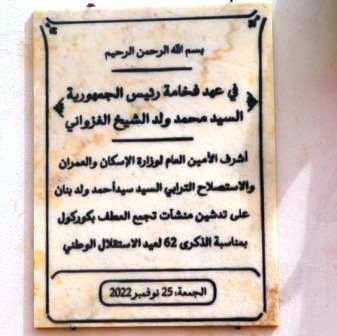 بسم الله الرحمن الرحيم
في عهد فخامة رئيس الجمهورية
السيد محمد ولد الشيخ الغزواني
أشرف الأمين العام لوزارة الإسكان والعمران
والاستصلاح الترابي السيد سيدأحمد ولد بنان
على تدشين منشآت تجمع العطف بكوركول
بمناسبة الذكرى 62 لعيد الاستقلال الوطني
الجمعة: 25 نوفمبر 2022